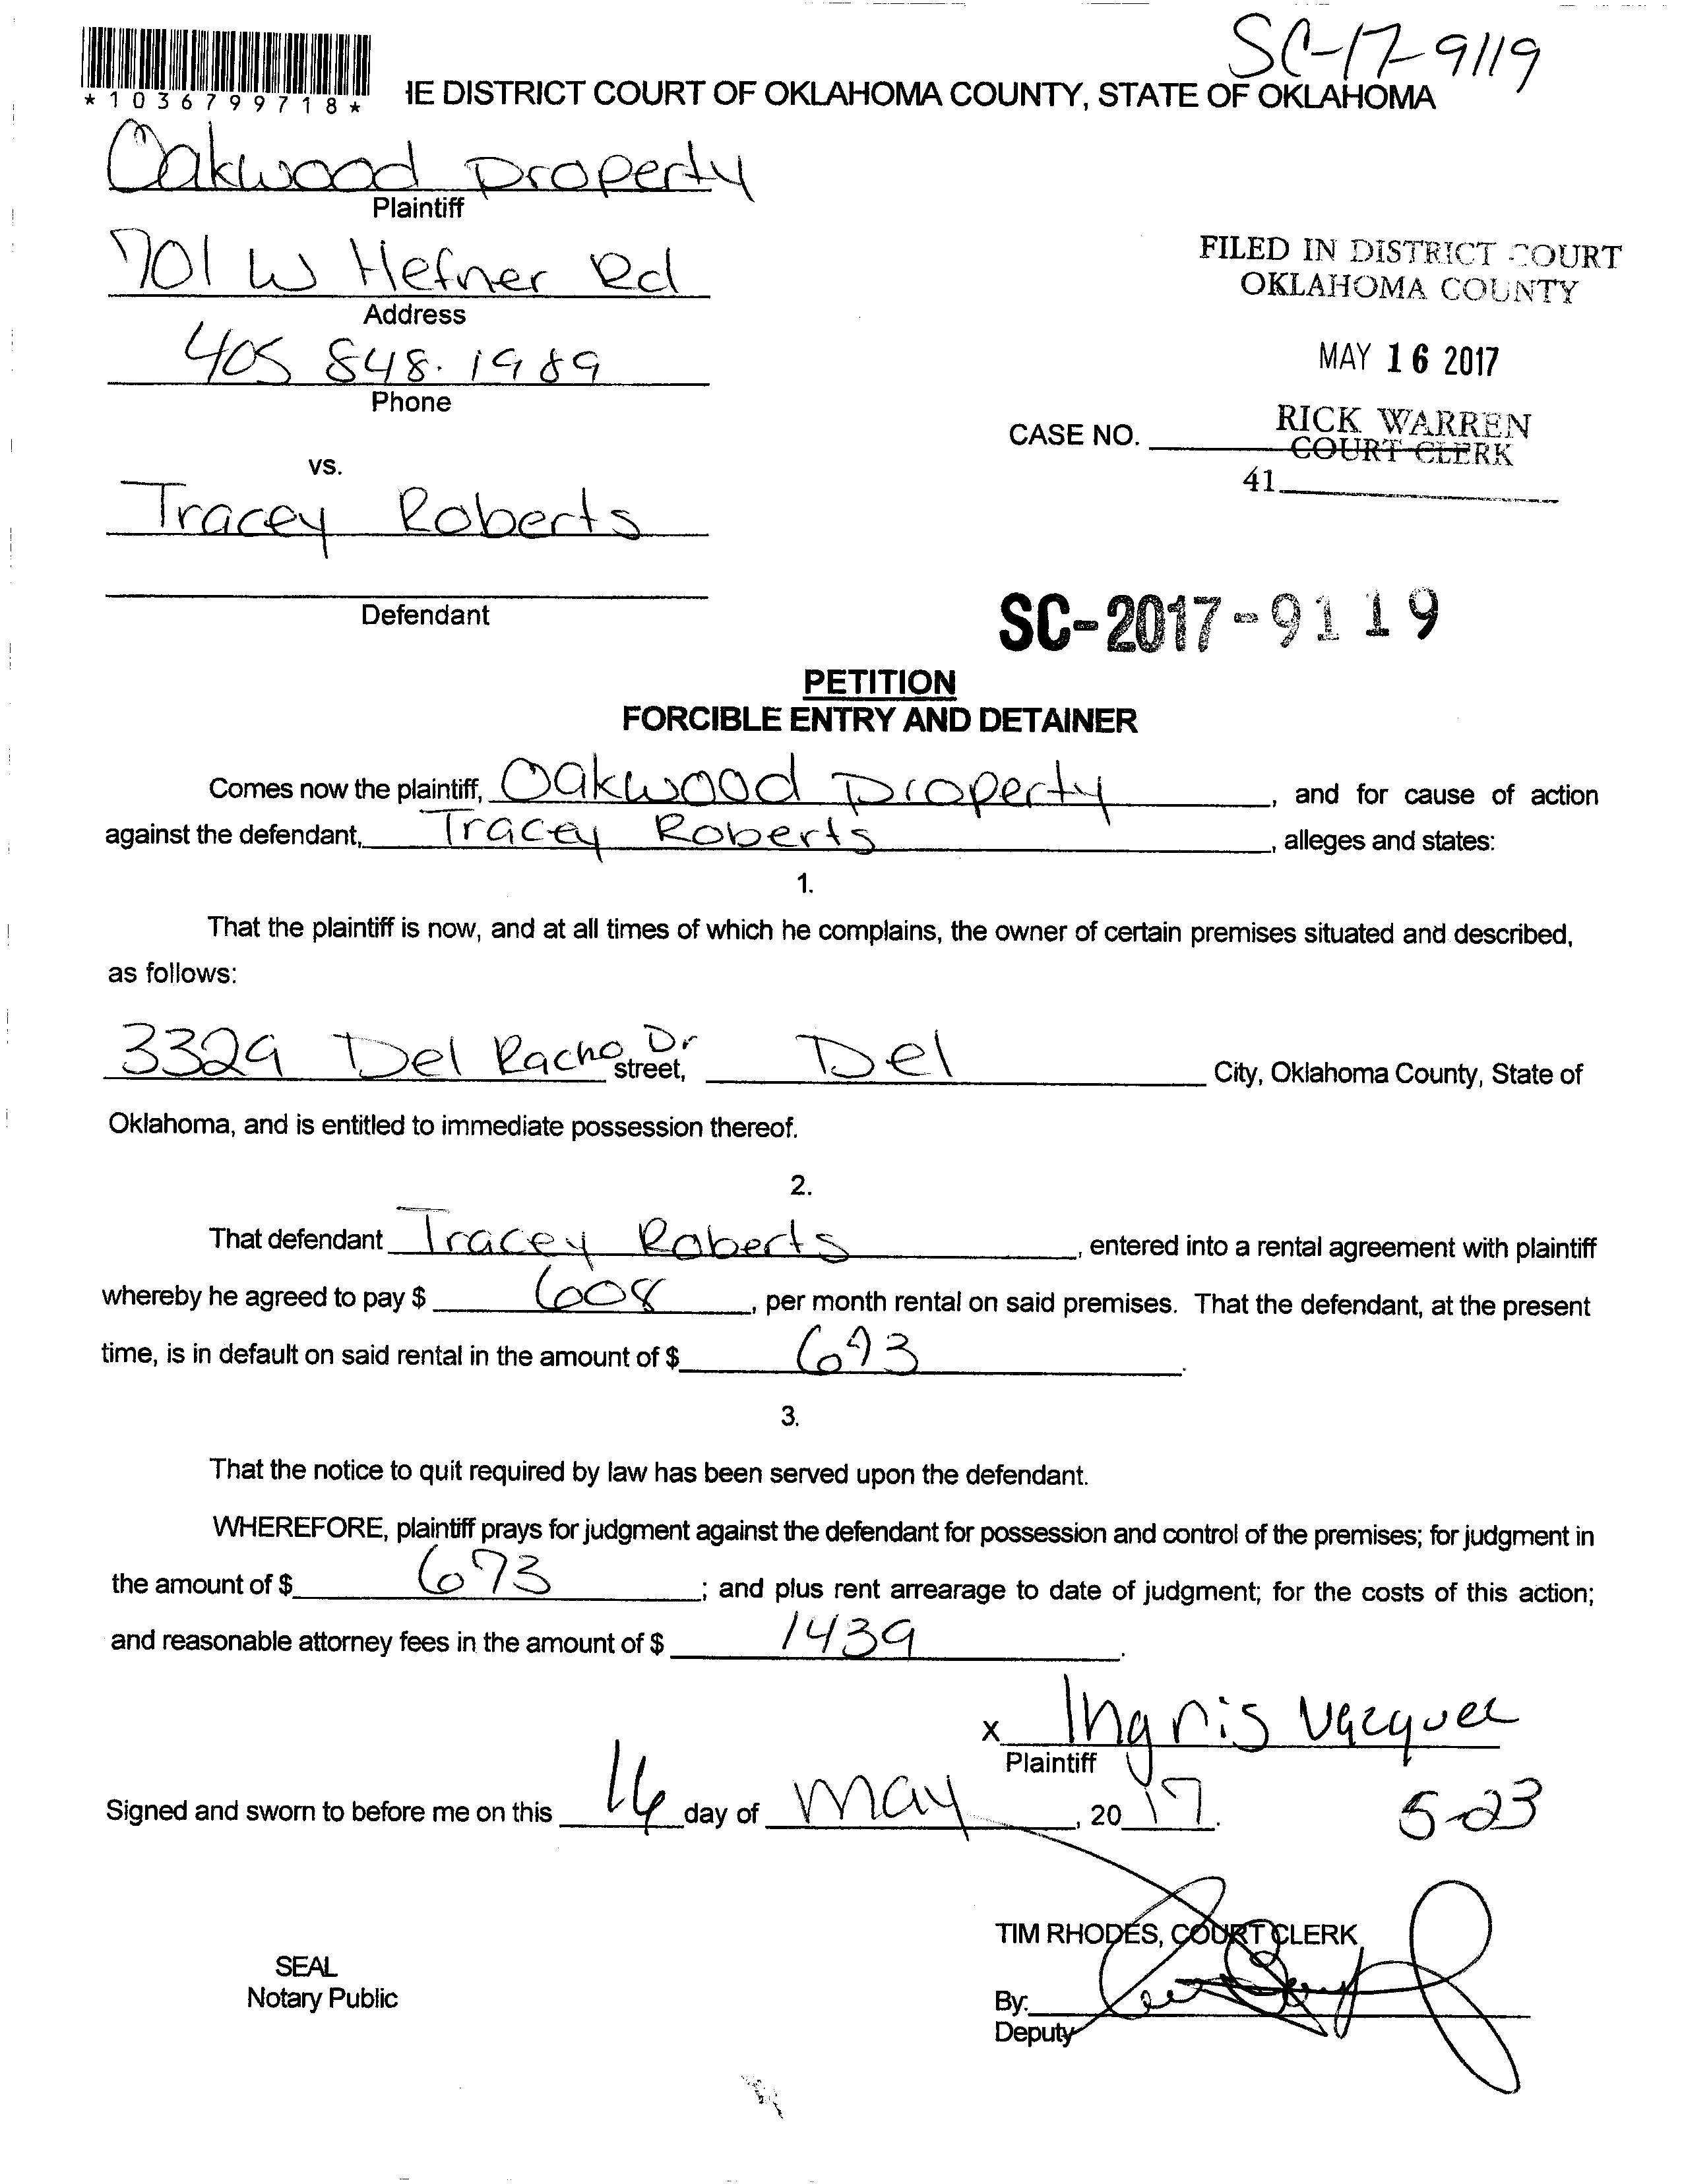 SC-17-9119
*1036799718*
IE DISTRICT COURT OF OKLAHOMA COUNTY, STATE OF OKLAHOMA
Oakwood Property
Plaintiff
701 W Hefner Rd
Address
405 848.1989
Phone
FILED IN DISTRICT COURT
OKLAHOMA COUNTY
MAY 16 2017
RICK WARREN
COURT CLERK
CASE NO.
41
vs.
Tracey Roberts
Defendant
SC-2017-9119
PETITION
FORCIBLE ENTRY AND DETAINER
Comes now the plaintiff, Oakwood Property, and for cause of action
against the defendant, Tracey Roberts, alleges and states:
1.
That the plaintiff is now, and at all times of which he complains, the owner of certain premises situated and described,
as follows:
3329 Del Racho Dr street, Del City, Oklahoma County, State of
Oklahoma, and is entitled to immediate possession thereof.
2.
That defendant Tracey Roberts, entered into a rental agreement with plaintiff
whereby he agreed to pay $ 608, per month rental on said premises. That the defendant, at the present
time, is in default on said rental in the amount of $ 693.
3.
That the notice to quit required by law has been served upon the defendant.
WHEREFORE, plaintiff prays for judgment against the defendant for possession and control of the premises; for judgment in
the amount of $ 673; and plus rent arrearage to date of judgment; for the costs of this action;
and reasonable attorney fees in the amount of $ 1439.
x Ingris Vazquez
Plaintiff
Signed and sworn to before me on this 16 day of May, 2017.
5-23
TIM RHODES, COURT CLERK
SEAL
Notary Public
By:
Deputy